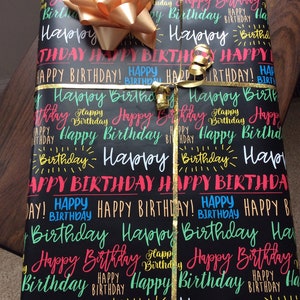 Happy Birthday
HAPPY
BIRTHDAY
Birthday
Happy
HAPPY BIRTHDAY HAPPY
HAPPY BIRTHDAY!
HAPPY
BIRTHDAY
HAPPY BIRTHDAY
Happy Birthday
HAPPY
BIRTHDAY
Happy
Birthday
Happy Birthday
Birthday
Happy
HAPPY BIRTHDAY HAPPY
HAPPY
BIRTHDAY
HAPPY BIRTHDAY!
Birthday
Happy
Happy Birthday
Happy
Birthday
HAPPY
BIRTHDAY
Happy Birthday
Birthday
Happy
HAPPY BIRTHDAY HAPPY BIRTHDAY
DAY!
HAPPY
BIRTHDAY
HAPPY BIRTHDAY!
Birthday
Happy Birthday
Happy Birthday
Happy
Birthday
HAPPY
BIRTHDAY
Happy